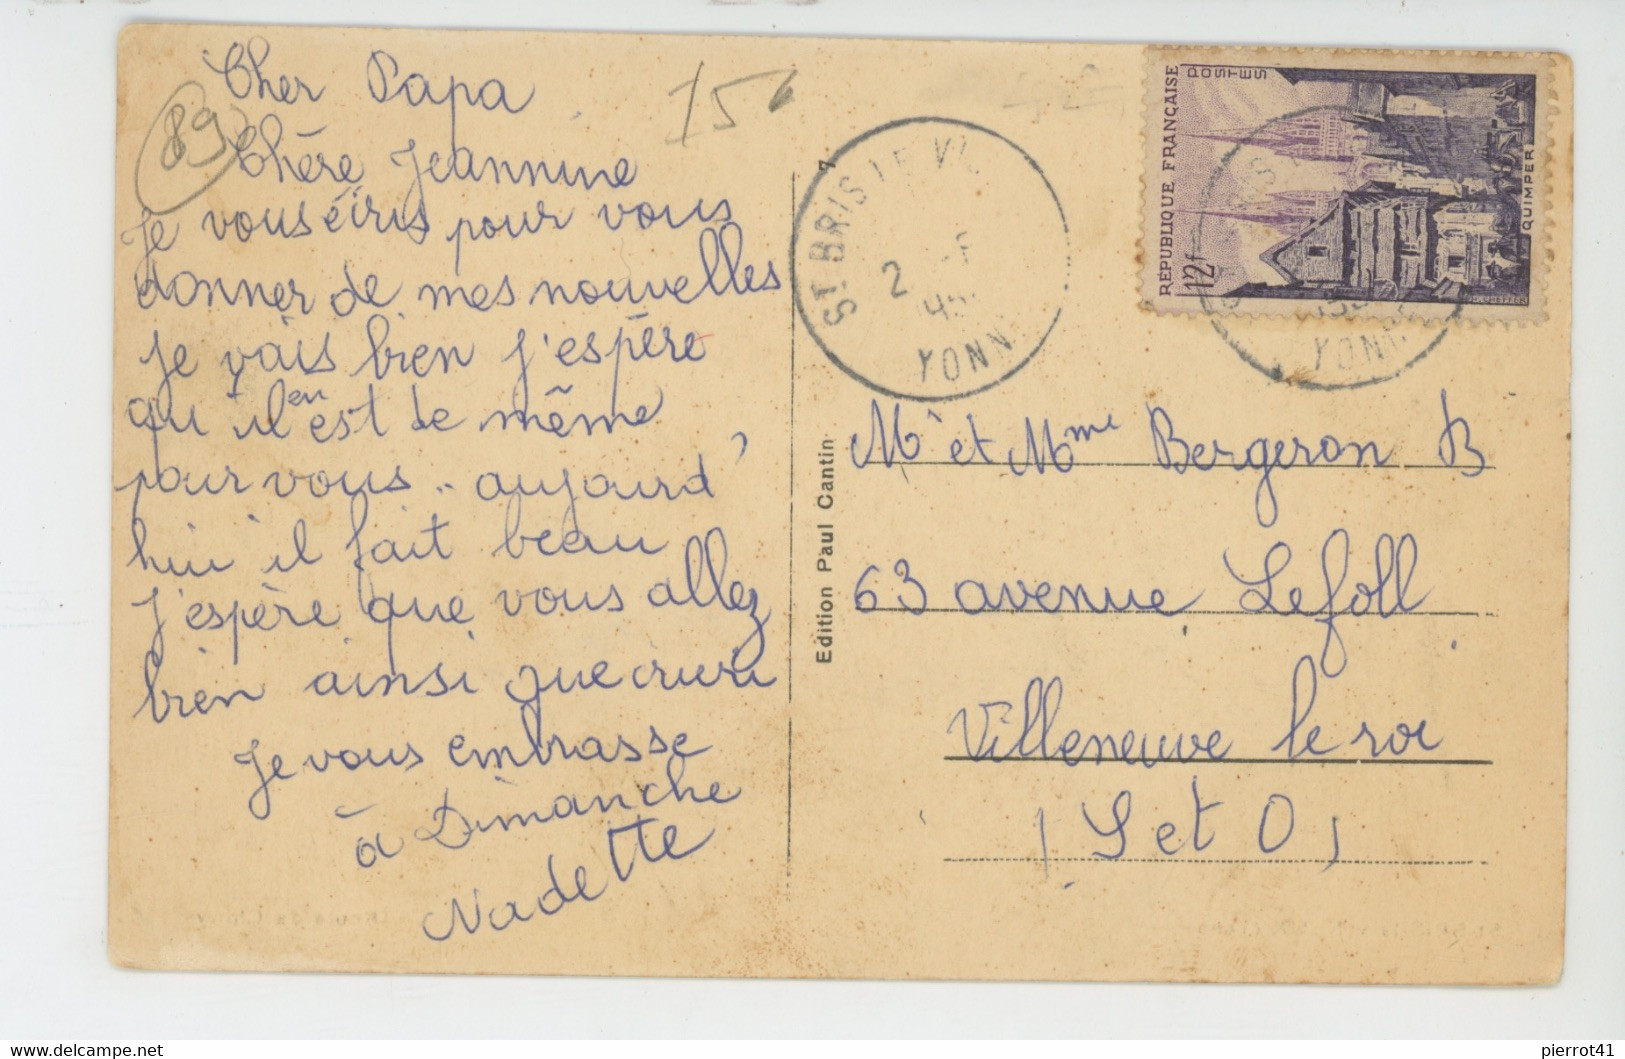 Cher Papa
Chère Jeannine
Je vous écris pour vous
donner de mes nouvelles
je vais bien j'espère
qu'il en est de même
pour vous .. aujourd'
hui il fait beau
J'espère que vous allez
bien ainsi que
Je vous embrasse
à Dimanche
Nadette
89
15
7
Edition Paul Cantin
ST BRIS LE VI
2
YONN
RÉPUBLIQUE FRANÇAISE
POSTES
12f
QUIMPER
YONN
Mr et Mme Bergeron B
63 avenue Lefoll
Villeneuve le roi
(S et O)
pierrot41